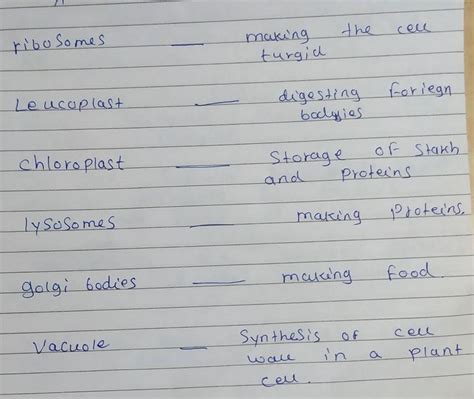 ribosomes — making the cell
turgid
Leucoplast — digesting foriegn
bodyies
chloroplast — Storage of Starh
and proteins
lysosomes — making proteins.
golgi bodies — making food.
Vacuole — Synthesis of cell
wall in a plant
cell.